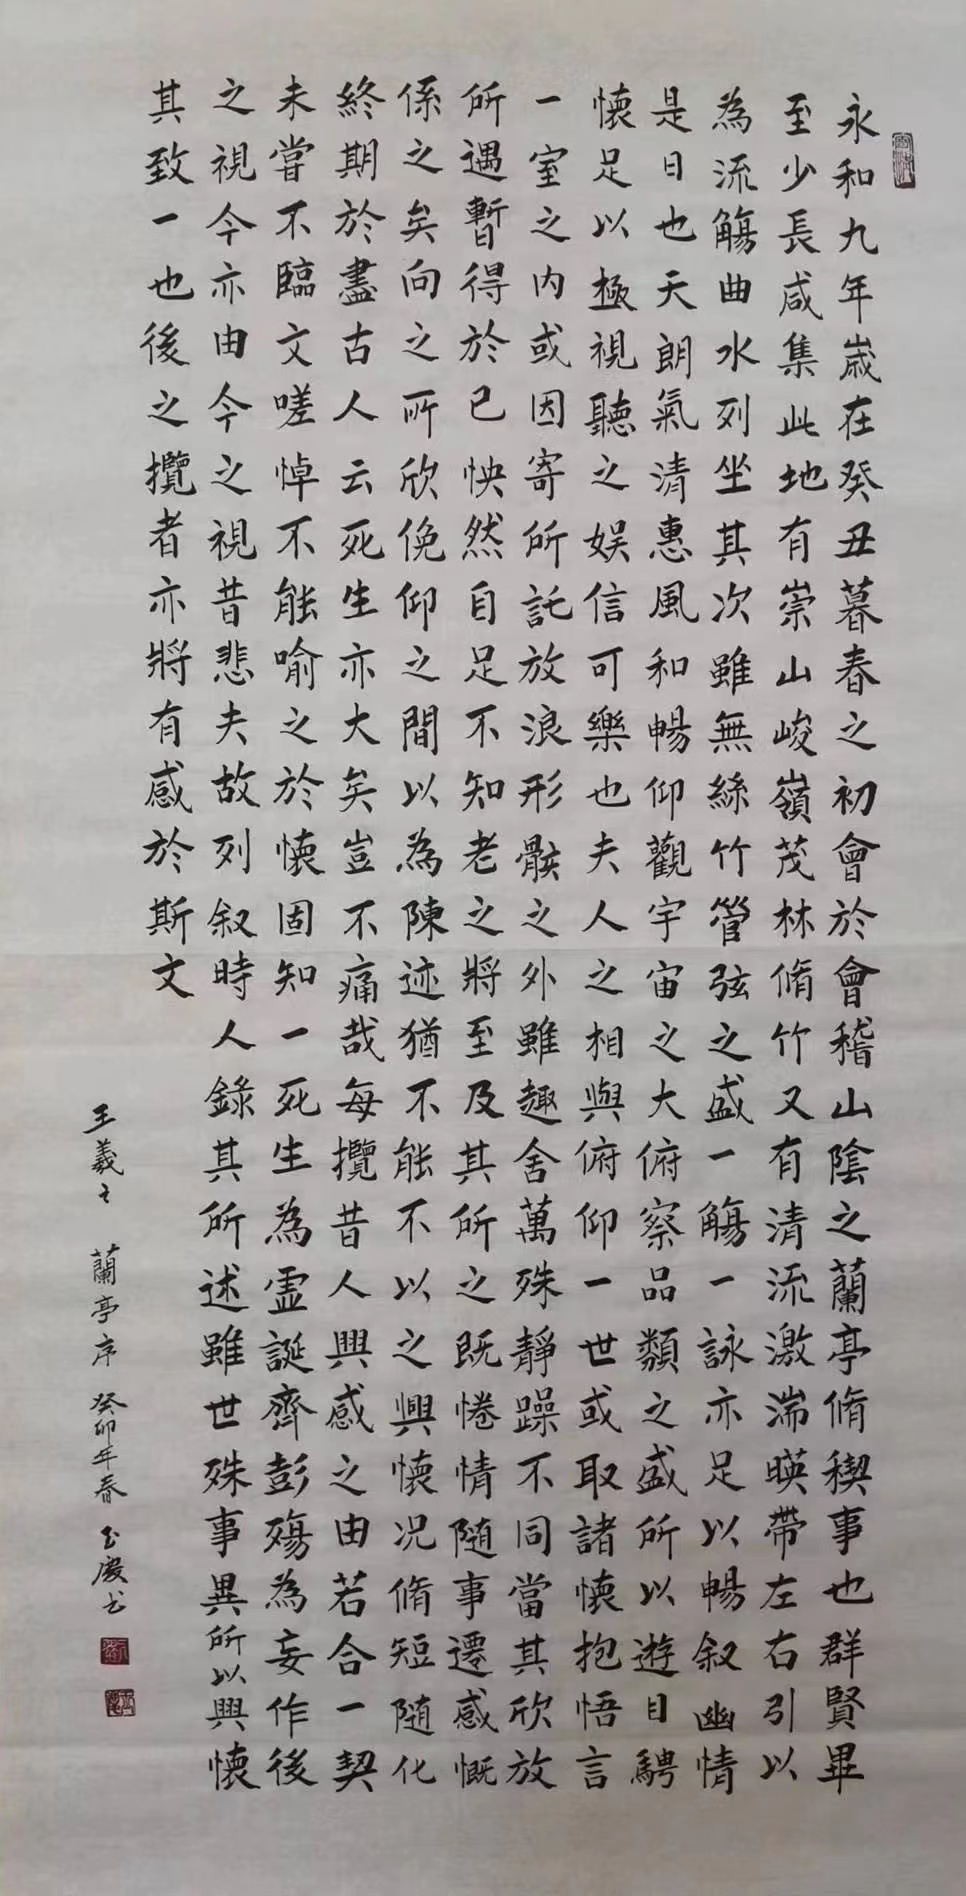 永和九年歲在癸丑暮春之初會於會稽山陰之蘭亭脩稧事也群賢畢
至少長咸集此地有崇山峻嶺茂林脩竹又有清流激湍暎帶左右引以
為流觴曲水列坐其次雖無絲竹管弦之盛一觴一詠亦足以暢叙幽情
是日也天朗氣清惠風和暢仰觀宇宙之大俯察品類之盛所以遊目騁
懐足以極視聽之娛信可樂也夫人之相與俯仰一世或取諸懐抱悟言
一室之内或因寄所託放浪形骸之外雖趣舍萬殊靜躁不同當其欣放
所遇暫得於己怏然自足不知老之將至及其所之既惓情随事遷感慨
係之矣向之所欣俛仰之間以為陳迹猶不能不以之興懐况脩短随化
終期於盡古人云死生亦大矣豈不痛哉每攬昔人興感之由若合一契
未嘗不臨文嗟悼不能喻之於懐固知一死生為虚誕齊彭殤為妄作後
之視今亦由今之視昔悲夫故列叙時人錄其所述雖世殊事異所以興懐
其致一也後之攬者亦將有感於斯文
王羲之 蘭亭序 癸卯年春 慶书